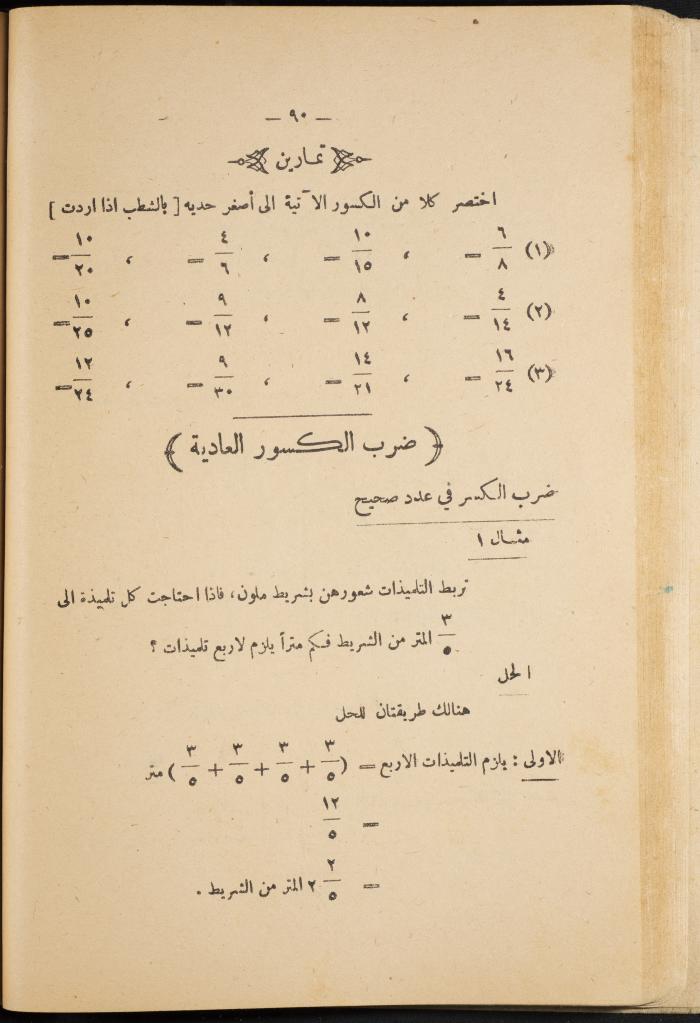 — ٩٠ —
تمارين
اختصر كلا من الكسور الآتية الى أصغر حديه [ بالشطب اذا اردت ]
(١) ٦/٨ = ، ١٠/١٥ = ، ٤/٦ = ، ١٠/٢٠ =
(٢) ٤/١٤ = ، ٨/١٢ = ، ٩/١٢ = ، ١٠/٢٥ =
(٣) ١٦/٢٤ = ، ١٤/٢١ = ، ٩/٣٠ = ، ١٢/٢٤ =
﴿ ضرب الكسور العادية ﴾
ضرب الكسر في عدد صحيح
مثال ١
تربط التلميذات شعورهن بشريط ملون، فاذا احتاجت كل تلميذة الى
٣/٥ المتر من الشريط فكم متراً يلزم لاربع تلميذات ؟
الحل
هنالك طريقتان للحل
الاولى : يلزم التلميذات الاربع = (٣/٥ + ٣/٥ + ٣/٥ + ٣/٥) متر
= ١٢/٥
= ٢/٥ ٢ المتر من الشريط .